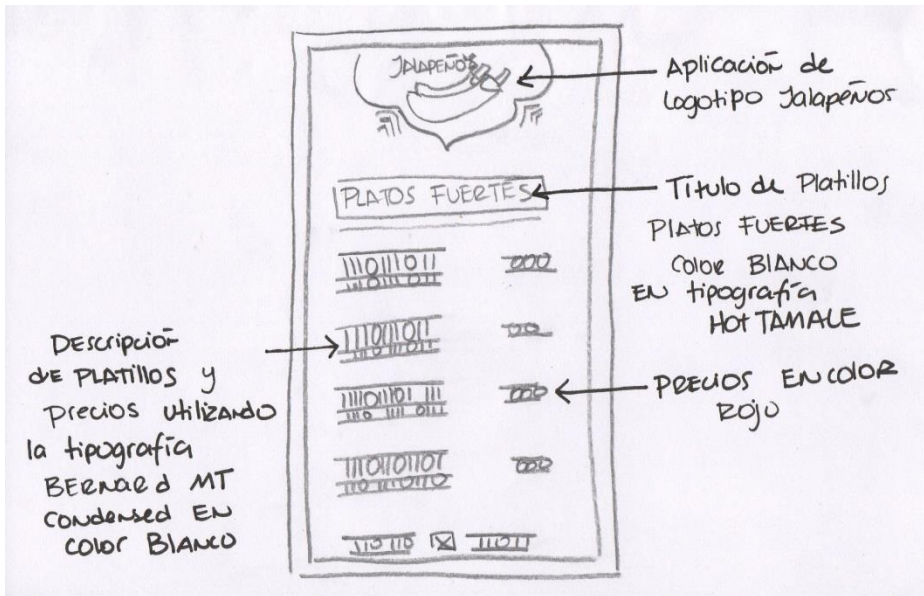 JALAPEÑOS
PLATOS FUERTES
Aplicación de
Logotipo Jalapeños
Titulo de Platillos
PLATOS FUERTES
COLOR BLANCO
EN tipografía
HOT TAMALE
PRECIOS EN COLOR
ROJO
Descripción
DE PLATILLOS y
precios utilizando
la tipografía
BERNARD MT
Condensed EN
COLOR BLANCO